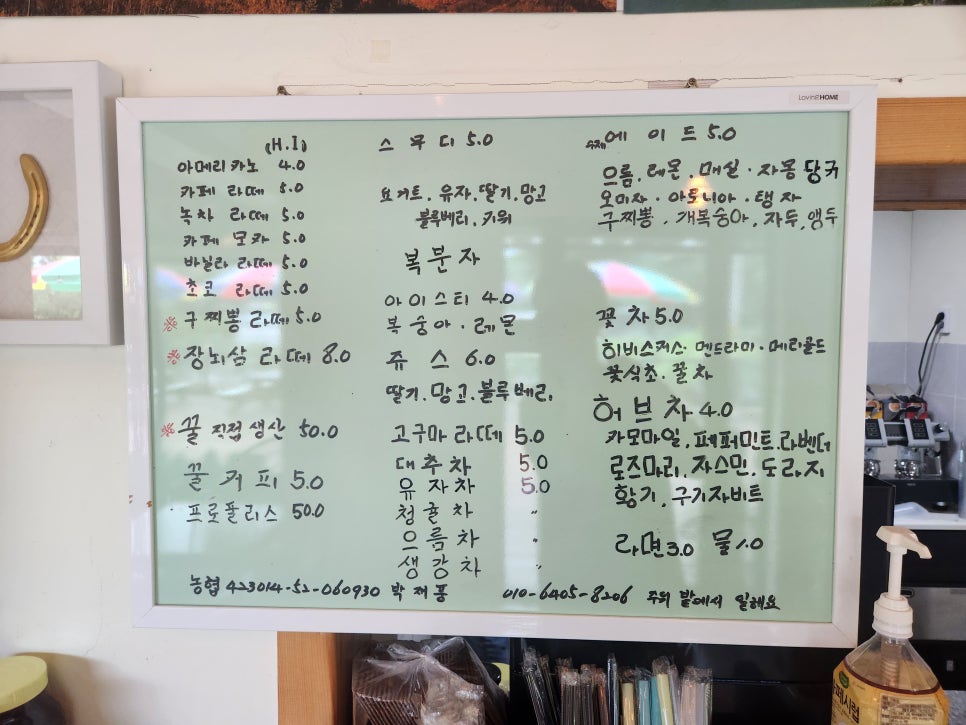 LovingHOME
(H.I)
아메리카노 4.0
카페 라떼 5.0
녹차 라떼 5.0
카페 모카 5.0
바닐라 라떼 5.0
초코 라떼 5.0
※ 구찌뽕 라떼 5.0
※ 장뇌삼 라떼 8.0
※ 꿀 직접생산 50.0
꿀커피 5.0
프로폴리스 50.0
스무디 5.0
요거트.유자.딸기.망고
블루베리.키위
복분자
아이스티 4.0
복숭아.레몬
쥬스 6.0
딸기.망고.블루베리.
고구마라떼 5.0
대추차 5.0
유자차 5.0
청귤차 〃
으름차 〃
생강차 〃
수제에이드 5.0
으름.레몬.매실.자몽 당귀
오미자.아로니아.탱자
구찌뽕.개복숭아.자두.앵두
꽃차 5.0
히비스커스.멘드라미.메리골드
꽃식초.꿀차
허브차 4.0
카모마일.페퍼민트.라벤더
로즈마리.자스민.도라지
황기.구기자비트
라면 3.0 물 1.0
농협 423014-52-060930 박재풍
010-6405-8206 주위 밭에서 일해요